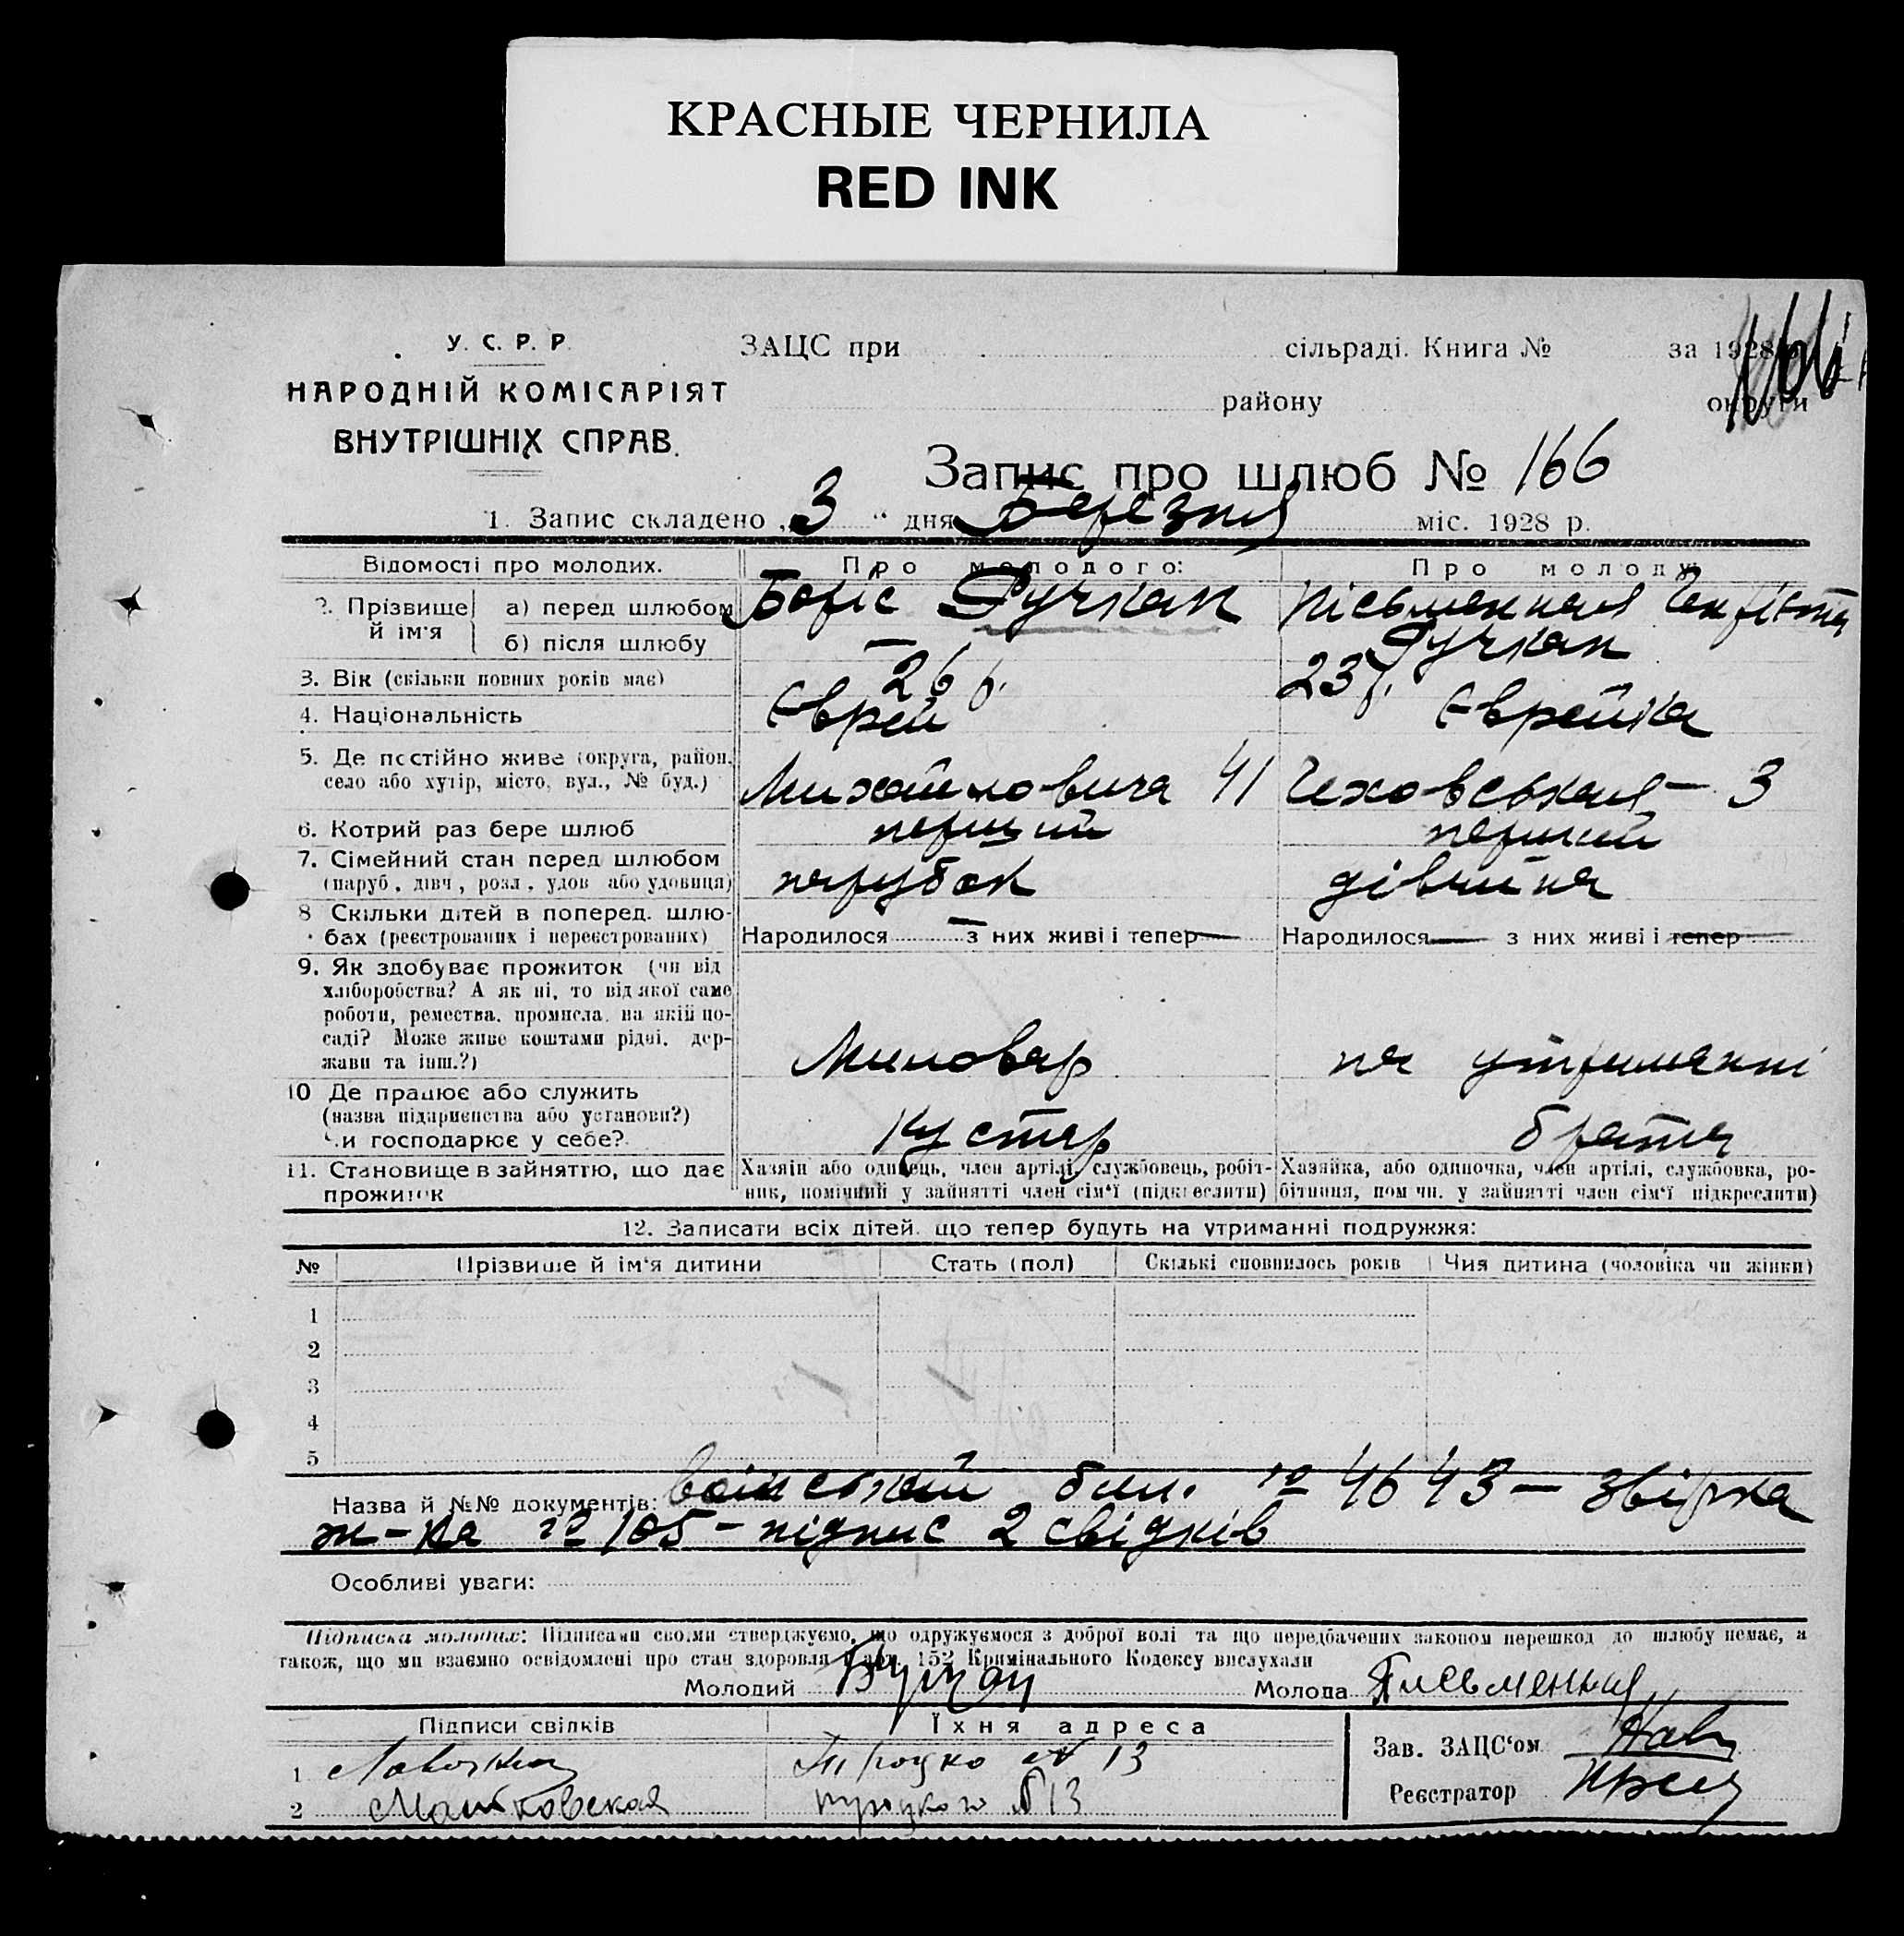 КРАСНЫЕ ЧЕРНИЛА
RED INK
У. С. Р. Р.
НАРОДНІЙ КОМІСАРІЯТ
ВНУТРІШНІХ СПРАВ.
ЗАЦС при сільраді. Книга № за 1928 р.
району округи
Запис про шлюб № 166
1. Запис складено „3“ дня Березня міс. 1928 р.
Відомості про молодих. Про молодого: Про молоду:
2. Прізвище й ім'я
а) перед шлюбом Боріс Ручкан Письменная Генріета
б) після шлюбу — Ручкан
3. Вік (скільки повних років має) 26 р. 23 р.
4. Національність Єврей Єврейка
5. Де постійно живе (округа, район, село або хутір, місто, вул., № буд.) Михайловича 41 Чеховськая — 3
6. Котрий раз бере шлюб перший перший
7. Сімейний стан перед шлюбом (паруб., дівч., розл., удов. або удовиця) парубок дівчина
8 Скільки дітей в поперед. шлю-
бах (реєстрованих і нереєстрованих) Народилося — з них живі і тепер — Народилося — з них живі і тепер —
9. Як здобуває прожиток (чи від
хліборобства? А як ні, то від якої саме
роботи, ремества, промисла, на якій по-
саді? Може живе коштами рідні, дер-
жави та інш.?) Миловар на утриманні
10 Де працює або служить
(назва підприємства або установи?)
Чи господарює у себе? Кустар брата
11. Становище в зайняттю, що дає
прожиток
Хазяїн або одинець, член артілі, службовець, робіт-
ник, помічний у зайнятті член сім'ї (підкреслити)
Хазяйка, або одиночка, член артілі, службовка, ро-
бітниця, помічн. у зайнятті член сім'ї підкреслити)
12. Записати всіх дітей, що тепер будуть на утриманні подружжя:
№ Прізвище й ім'я дитини Стать (пол) Скількі сповнилось років Чия дитина (чоловіка чи жінки)
1
2
3
4
5
Назва й №№ документів: воінський бил. № 4643 — звірка
ж-ка № 105 — підпис 2 свідків
Особливі уваги:
Підписка молодих: Підписами своїми стверджуємо, що одружуємося з доброї волі та що передбачених законом перешкод до шлюбу немає, а
також, що ми взаємно освідомлені про стан здоровля й арт. 152 Кримінального Кодексу вислухали
Молодий Молода Письменная
Підписи свідків Їхня адреса
1 13
2 Троцкого № 13
Зав. ЗАЦС'ом
Реєстратор